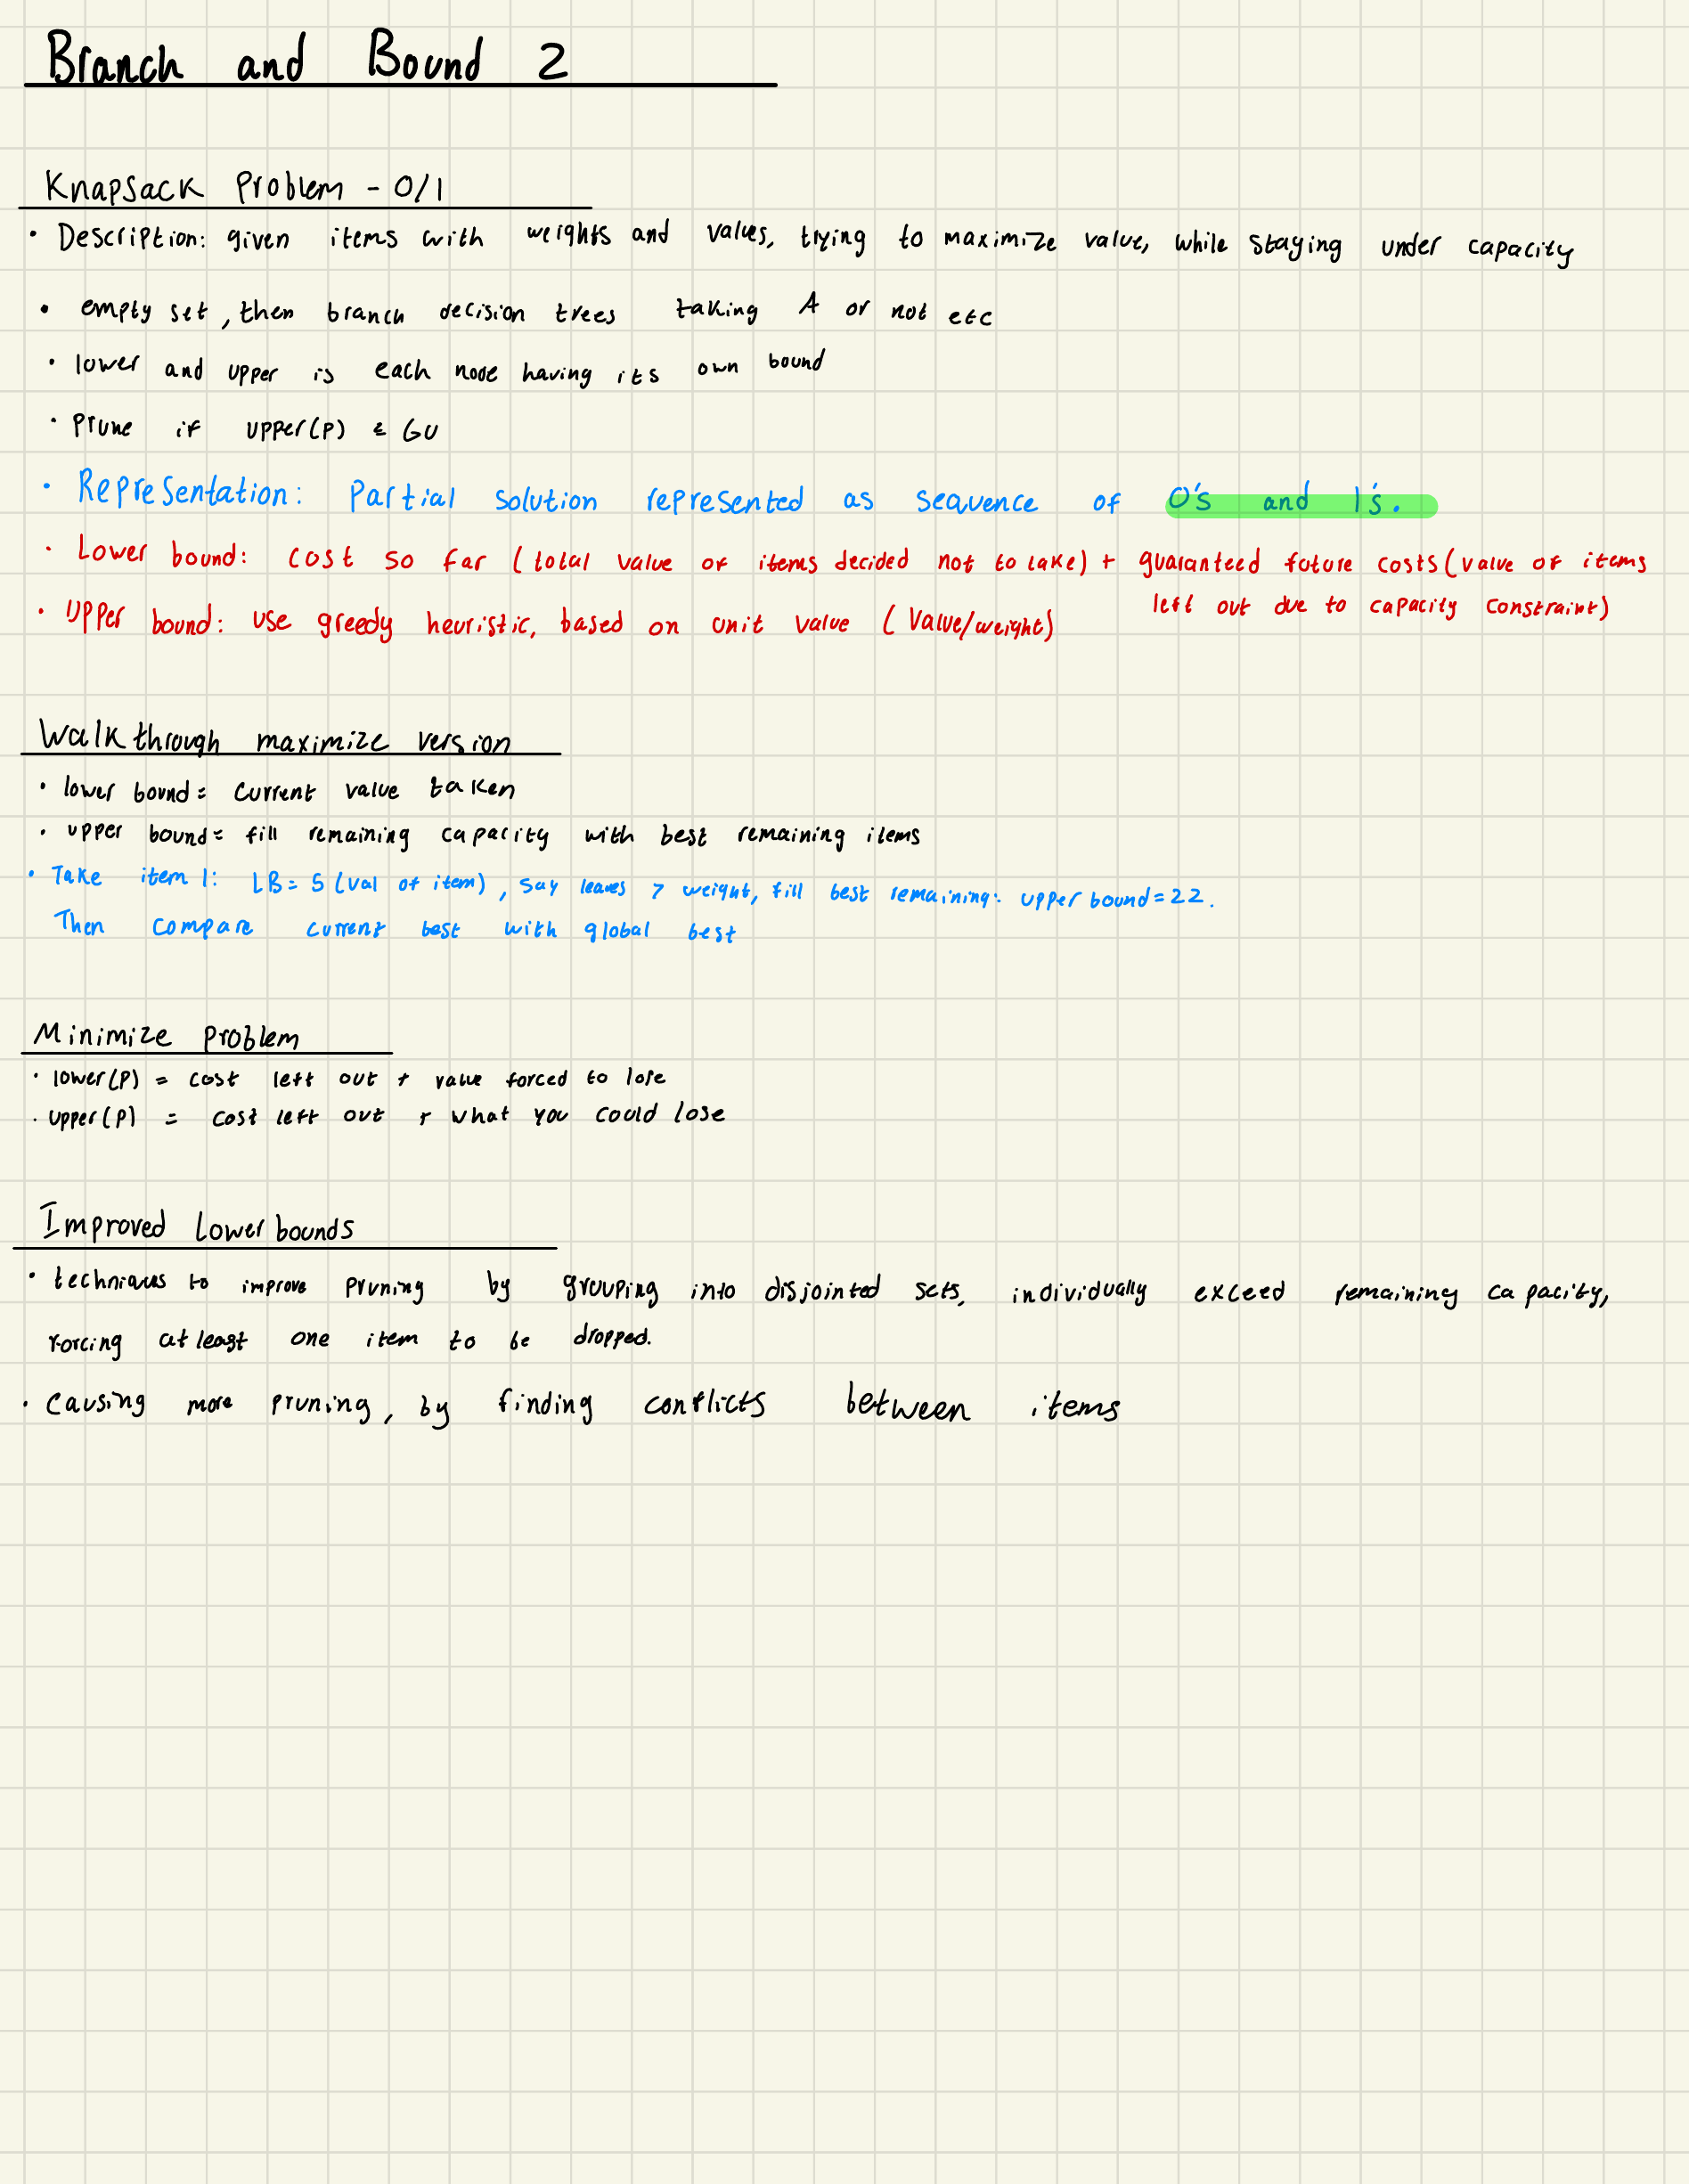 Branch and Bound 2
Knapsack Problem - 0/1
• Description: given items with weights and values, trying to maximize value, while staying under capacity
• empty set, then branch decision trees taking A or not etc
• lower and upper is each node having its own bound
• Prune if upper(P) ≤ GU
• Representation: Partial solution represented as sequence of 0's and 1's.
• Lower bound: cost so far (total value of items decided not to take) + guaranteed future costs (value of items
left out due to capacity constraint)
• Upper bound: use greedy heuristic, based on unit value (Value/weight)
Walkthrough maximize version
• lower bound = current value taken
• upper bound = fill remaining capacity with best remaining items
• Take item 1: LB = 5 (val of item), say leaves 7 weight, fill best remaining: upper bound = 22.
Then compare current best with global best
Minimize Problem
• lower(P) = cost left out + value forced to lose
• upper(P) = cost left out + what you could lose
Improved Lower bounds
• techniques to improve pruning by grouping into disjointed sets, individually exceed remaining capacity,
forcing at least one item to be dropped.
• Causing more pruning, by finding conflicts between items